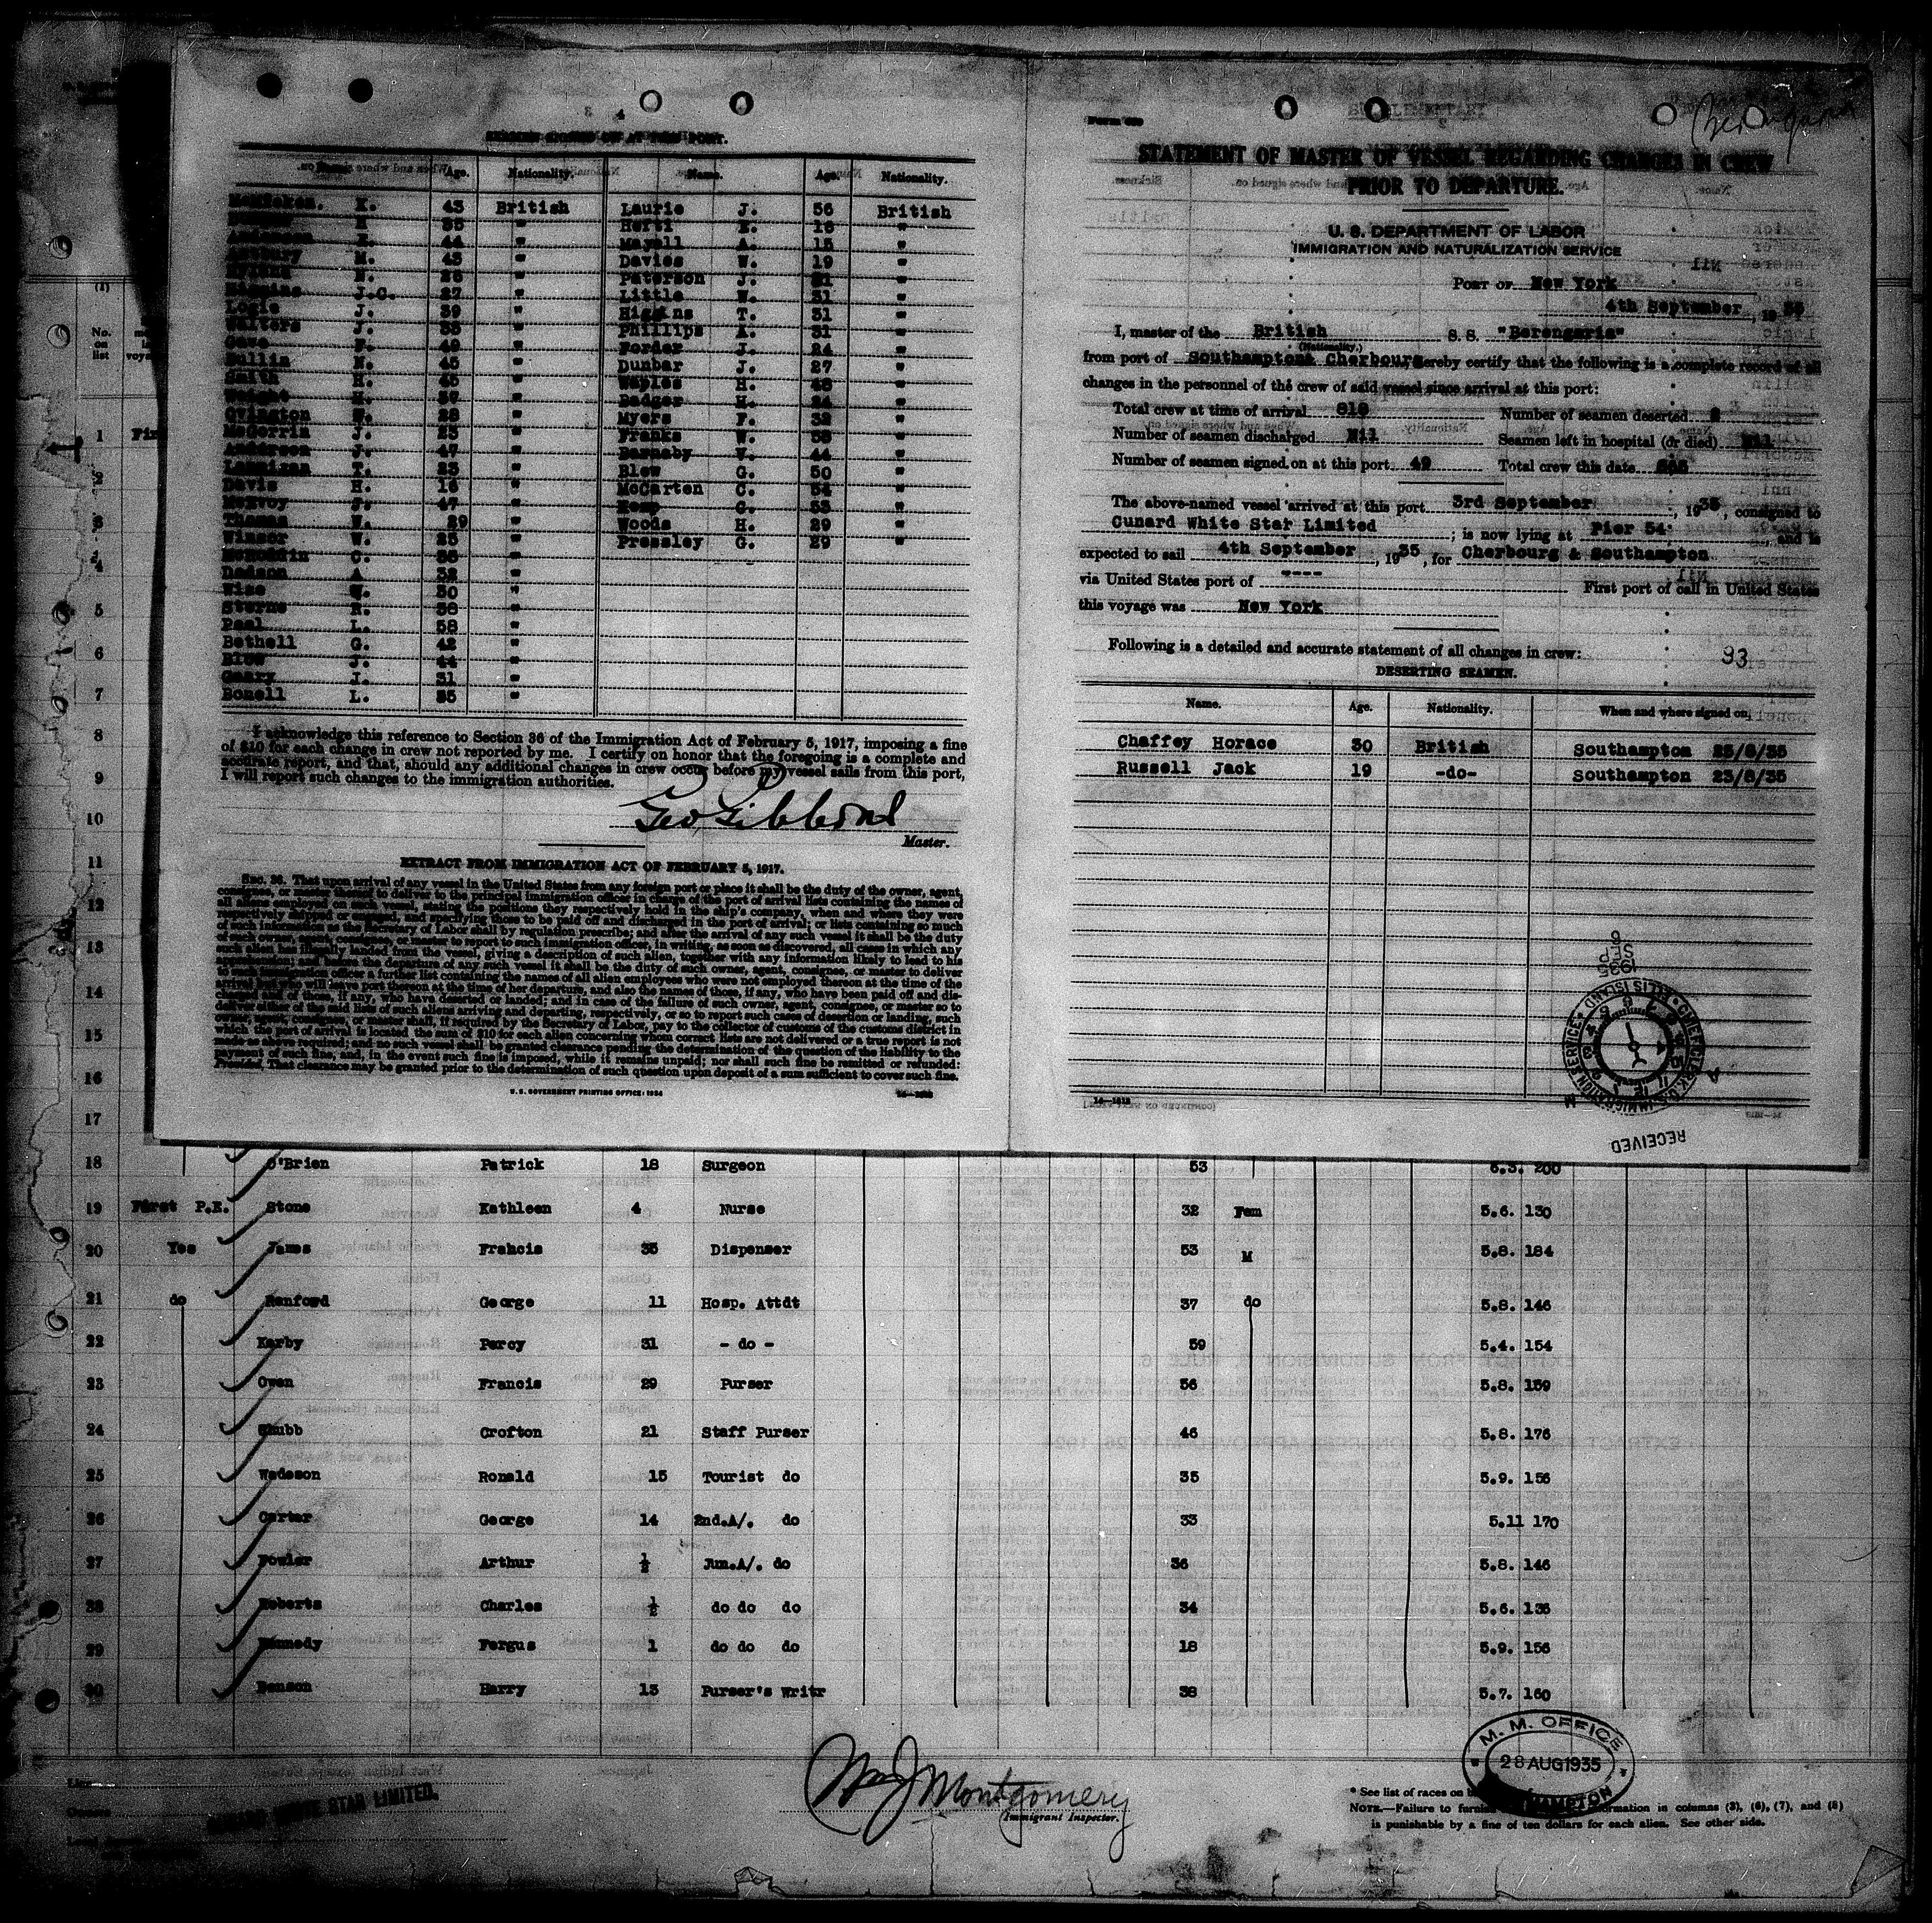 4
SEAMEN SIGNED ON AT THIS PORT.
Name. Age. Nationality. Name. Age. Nationality.
K. 43 British Laurie J. 56 British
35 " E. 16 "
44 " Mayell A. 15 "
M. 43 " Davies W. 19 "
26 " Paterson J. "
J.C. 27 " Little W. 31 "
Logie J. 39 " Higgins T. 31 "
Walters J. " Phillips A. 31 "
" Forder J. 24 "
N. 45 " Dunbar J. 27 "
Smith H. 45 " Waples H. 48 "
Wright H. 37 " Badger H. 24 "
Ovington W. 28 " Myers F. 32 "
J. 23 " Franks W. "
Anderson J. 47 " Barnaby V. 44 "
T. 23 " Blew G. 50 "
Davis H. 16 " McCarten C. 54 "
McEvoy 47 " Kemp G. 53 "
Thomas W. 29 " Woods H. 29 "
Winsor W. 25 " Pressley G. 29 "
C. "
Dodson A. 32 "
Wise 30 "
R. "
L. 58 "
Bethell G. 42 "
J. 44 "
Geary J. 31 "
Bonell L. 35 "
I acknowledge this reference to Section 36 of the Immigration Act of February 5, 1917, imposing a fine
of $10 for each change in crew not reported by me. I certify on honor that the foregoing is a complete and
accurate report, and that, should any additional changes in crew occur before my vessel sails from this port,
I will report such changes to the immigration authorities.
Geo Gibbons
Master.
EXTRACT FROM IMMIGRATION ACT OF FEBRUARY 5, 1917.
SEC. 36. That upon arrival of any vessel in the United States from any foreign port or place it shall be the duty of the owner, agent,
consignee, or master thereof to deliver to the principal immigration officer in charge of the port of arrival lists containing the names of
all aliens employed on such vessel, stating the positions they respectively hold in the ship's company, when and where they were
respectively shipped or engaged, and specifying those to be paid off and discharged in the port of arrival; or lists containing so much
of such information as the Secretary of Labor shall by regulation prescribe; and after the arrival of any such vessel it shall be the duty
of such owner, agent, consignee, or master to report to such immigration officer, in writing, as soon as discovered, all cases in which any
such alien has illegally landed from the vessel, giving a description of such alien, together with any information likely to lead to his
apprehension; and before the departure of any such vessel it shall be the duty of such owner, agent, consignee, or master to deliver
to such immigration officer a further list containing the names of all alien employees who were not employed thereon at the time of the
arrival but who will leave port thereon at the time of her departure, and also the names of those, if any, who have been paid off and dis-
charged and of those, if any, who have deserted or landed; and in case of the failure of such owner, agent, consignee, or master so to
deliver either of the said lists of such aliens arriving and departing, respectively, or so to report such cases of desertion or landing, such
owner, agent, consignee, or master shall, if required by the Secretary of Labor, pay to the collector of customs of the customs district in
which the port of arrival is located the sum of $10 for each alien concerning whom correct lists are not delivered or a true report is not
made as above required; and no such vessel shall be granted clearance pending the determination of the question of the liability to the
payment of such fine, and, in the event such fine is imposed, while it remains unpaid; nor shall such fine be remitted or refunded:
Provided, That clearance may be granted prior to the determination of such question upon deposit of a sum sufficient to cover such fine.
U. S. GOVERNMENT PRINTING OFFICE: 1934
Berengaria
STATEMENT OF MASTER OF VESSEL REGARDING CHANGES IN CREW
PRIOR TO DEPARTURE.
U. S. DEPARTMENT OF LABOR
IMMIGRATION AND NATURALIZATION SERVICE
PORT OF New York
4th September, 1935
I, master of the British S. S. "Berengaria"
(Nationality.)
from port of Southampton & Cherbourg hereby certify that the following is a complete record of all
changes in the personnel of the crew of said vessel since arrival at this port:
Total crew at time of arrival Number of seamen deserted 2
Number of seamen discharged Nil Seamen left in hospital (or died) Nil
Number of seamen signed on at this port 49 Total crew this date
The above-named vessel arrived at this port 3rd September, 1935, consigned to
Cunard White Star Limited; is now lying at Pier 54, and is
expected to sail 4th September, 1935, for Cherbourg & Southampton
via United States port of ---- First port of call in United States
this voyage was New York
Following is a detailed and accurate statement of all changes in crew: 93
DESERTING SEAMEN.
Name. Age. Nationality. When and where signed on.
Chaffey Horace 30 British Southampton 23/8/35
Russell Jack 19 -do- Southampton 23/8/35
1935
SEP
6
CHIEF CLERK U.S. IMMIGRATION SERVICE ELLIS ISLAND
RECEIVED
(1)
No. on list
1
2
3
4
5
6
7
8
9
10
11
12
13
14
15
16
17
18 O'Brien Patrick 18 Surgeon 53 200
19 First P.E. Stone Kathleen 4 Nurse 32 Fem 5.6. 130
20 Yes James Francis 35 Dispenser 53 M 5.8. 184
21 do Renford George 11 Hosp. Attdt 37 do 5.8. 146
22 Karby Percy 31 - do - 59 5.4. 154
23 Owen Francis 29 Purser 56 5.8. 159
24 Chubb Crofton 21 Staff Purser 46 5.8. 176
25 Wadeson Ronald 15 Tourist do 35 5.9. 156
26 Carter George 14 2nd.A/. do 33 5.11 170
27 Fowler Arthur ½ Jun.A/. do 36 5.8. 146
28 Roberts Charles ½ do do do 34 5.6. 136
29 Kennedy Fergus 1 do do do 18 5.9. 156
30 Benson Harry 13 Purser's Writr 38 5.7. 160
WHITE STAR LIMITED.
Wm J Montgomery
Immigrant Inspector.
M. M. OFFICE
28 AUG 1935
* See list of races on
NOTE.—Failure to furnish information in columns (3), (6), (7), and (8)
is punishable by a fine of ten dollars for each alien. See other side.